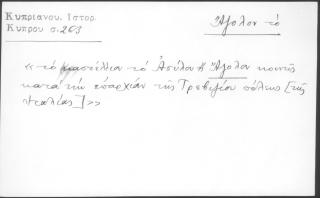 Κυπριανου. Ιστορ.
Κυπρου σ. 263
Ἄζολον τό
« τὸ καστέλλιον τὸ Ἀσύλον ἢ Ἄζολον κοινῆς
κατὰ τὴν ἐπαρχίαν τῆς Τρεβιζίου πόλεως [τῆς
Ἰταλίας] »